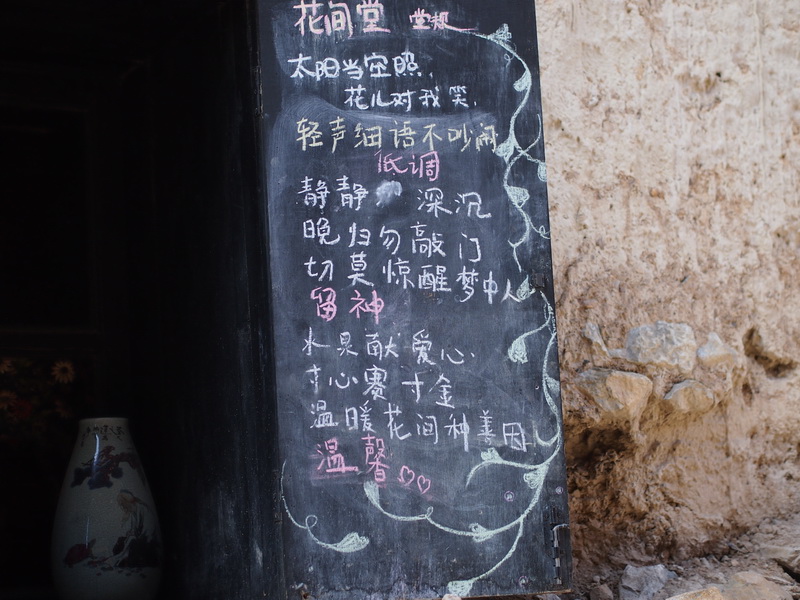 花间堂 堂规
太阳当空照,
花儿对我笑,
轻声细语不吵闹
低调
静静 深沉
晚归勿敲门
切莫惊醒梦中人
留神
水果献爱心.
寸心赛寸金
温暖花间种善因
温馨